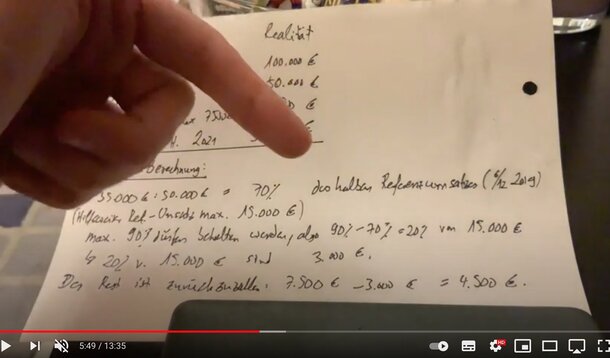 Realität
100.000 €
50.000 €
€
2021 €
berechnung:
35.000 € : 50.000 € = 70% des halben Referenzumsatzes (6/12 2019)
(Hilfe Ref-Umsatz max. 15.000 €)
max. 90% dürfen behalten werden, also 90% - 70% = 20% von 15.000 €
↳ 20% v. 15.000 € sind 3.000 €.
Der Rest ist zurückzuzahlen: 7.500 € - 3.000 € = 4.500 €.
5:49 / 13:35
HD